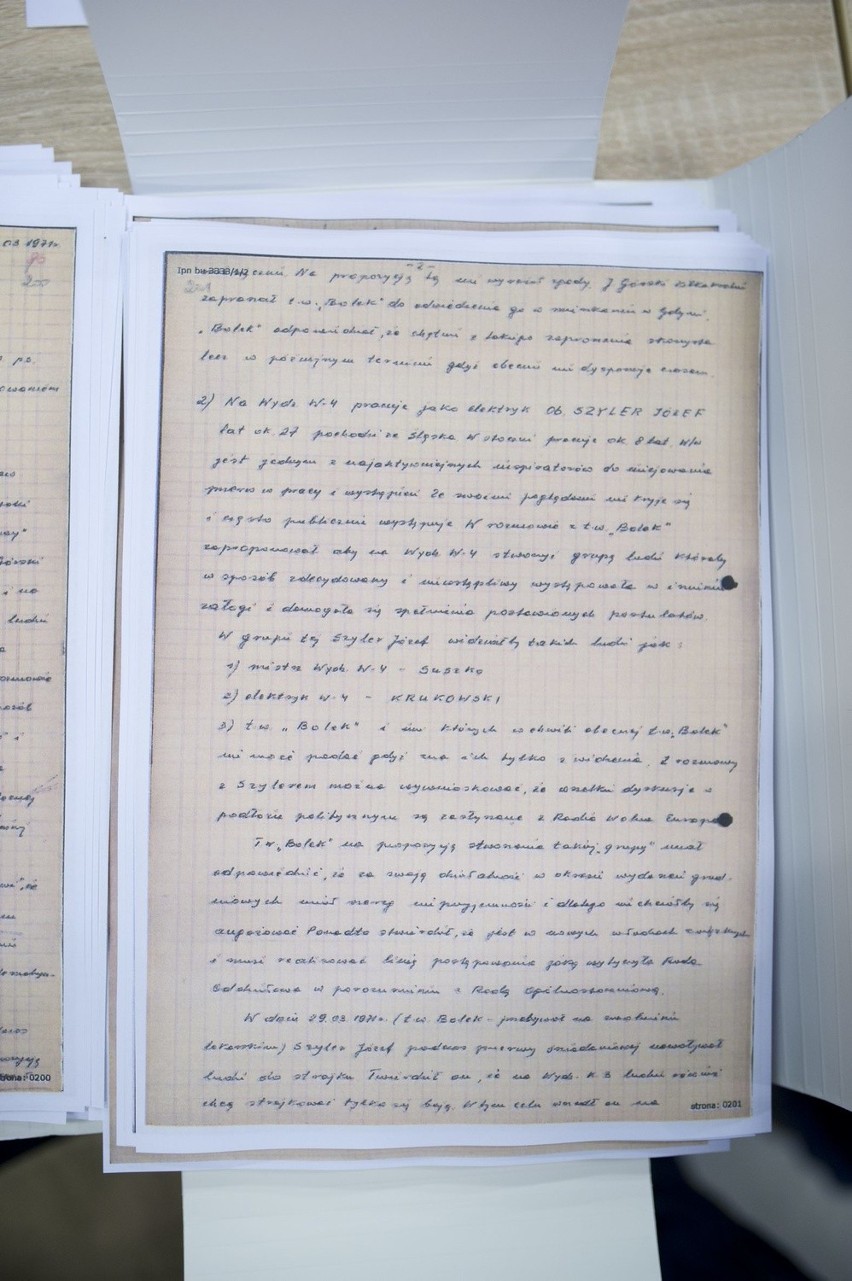 03 1971r.
Ipn bu 3333/1/2
- 2 -
Na propozycję tą nie wyraził zgody. J Górski
zapraszał t.w. „Bolek" do odwiedzenia go w mieszkaniu w Gdyni.
„Bolek" odpowiedział, że chętnie z takiego zaproszenia skorzysta
lecz w późniejszym terminie gdyż obecnie nie dysponuje czasem.
2) Na Wydz W-4 pracuje jako elektryk Ob. SZYLER JÓZEF
lat ok. 27 pochodzi ze Śląska W stoczni pracuje ok. 8 lat. W/w
jest jednym z najaktywniejszych inspiratorów do
przerw w pracy i wystąpień Ze swoimi poglądami nie kryje się
i często publicznie występuje W rozmowie z t.w. „Bolek"
zaproponował aby na Wydz W-4 stworzyć grupę ludzi któraby
w sposób zdecydowany i nieustępliwy występowała w imieniu
załogi i domagała się spełnienia postawionych postulatów.
W grupie tej Szyler Józef widziałby takich ludzi jak:
1) mistrz Wydz. W-4 - Suszko
2) elektryk W-4 - KRUKOWSKI
3) t.w. „Bolek" i inni których w chwili obecnej t.w. „Bolek"
nie może podać gdyż zna ich tylko z widzenia. Z rozmowy
z Szylerem można wywnioskować, że wszelkie dyskusje o
podłożu politycznym są zasłyszane z Radia Wolna Europa
T.w. „Bolek" na propozycję stworzenia takiej „grupy" miał
odpowiedzieć, że za swoją działalność w okresie wydarzeń grud-
niowych miał szereg nieprzyjemności i dlatego nie chciałby się
angażować Ponadto stwierdził, że jest w nowych władzach związkowych
i musi realizować linię postępowania jaką wytyczyła Rada
Oddziałowa w porozumieniu z Radą Ogólnostoczniową.
W dniu 29.03.1971r. (t.w. Bolek - przebywał na zwolnieniu
lekarskim) Szyler Józef podczas przerwy śniadaniowej nawoływał
ludzi do strajku Twierdził on, że na Wydz. K-3 ludzie również
chcą strajkować tylko się boją. W tym celu wszedł on na
strona: 0200
strona: 0201